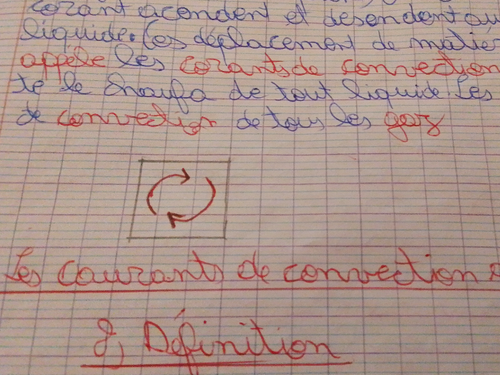 corant acendent et desendent au
liquide. Ces déplacement de matiè
appele les corants de convection
te le chaufa de tout liquide Les
de convection de tous les gaz
Les courants de convection
8, Définition